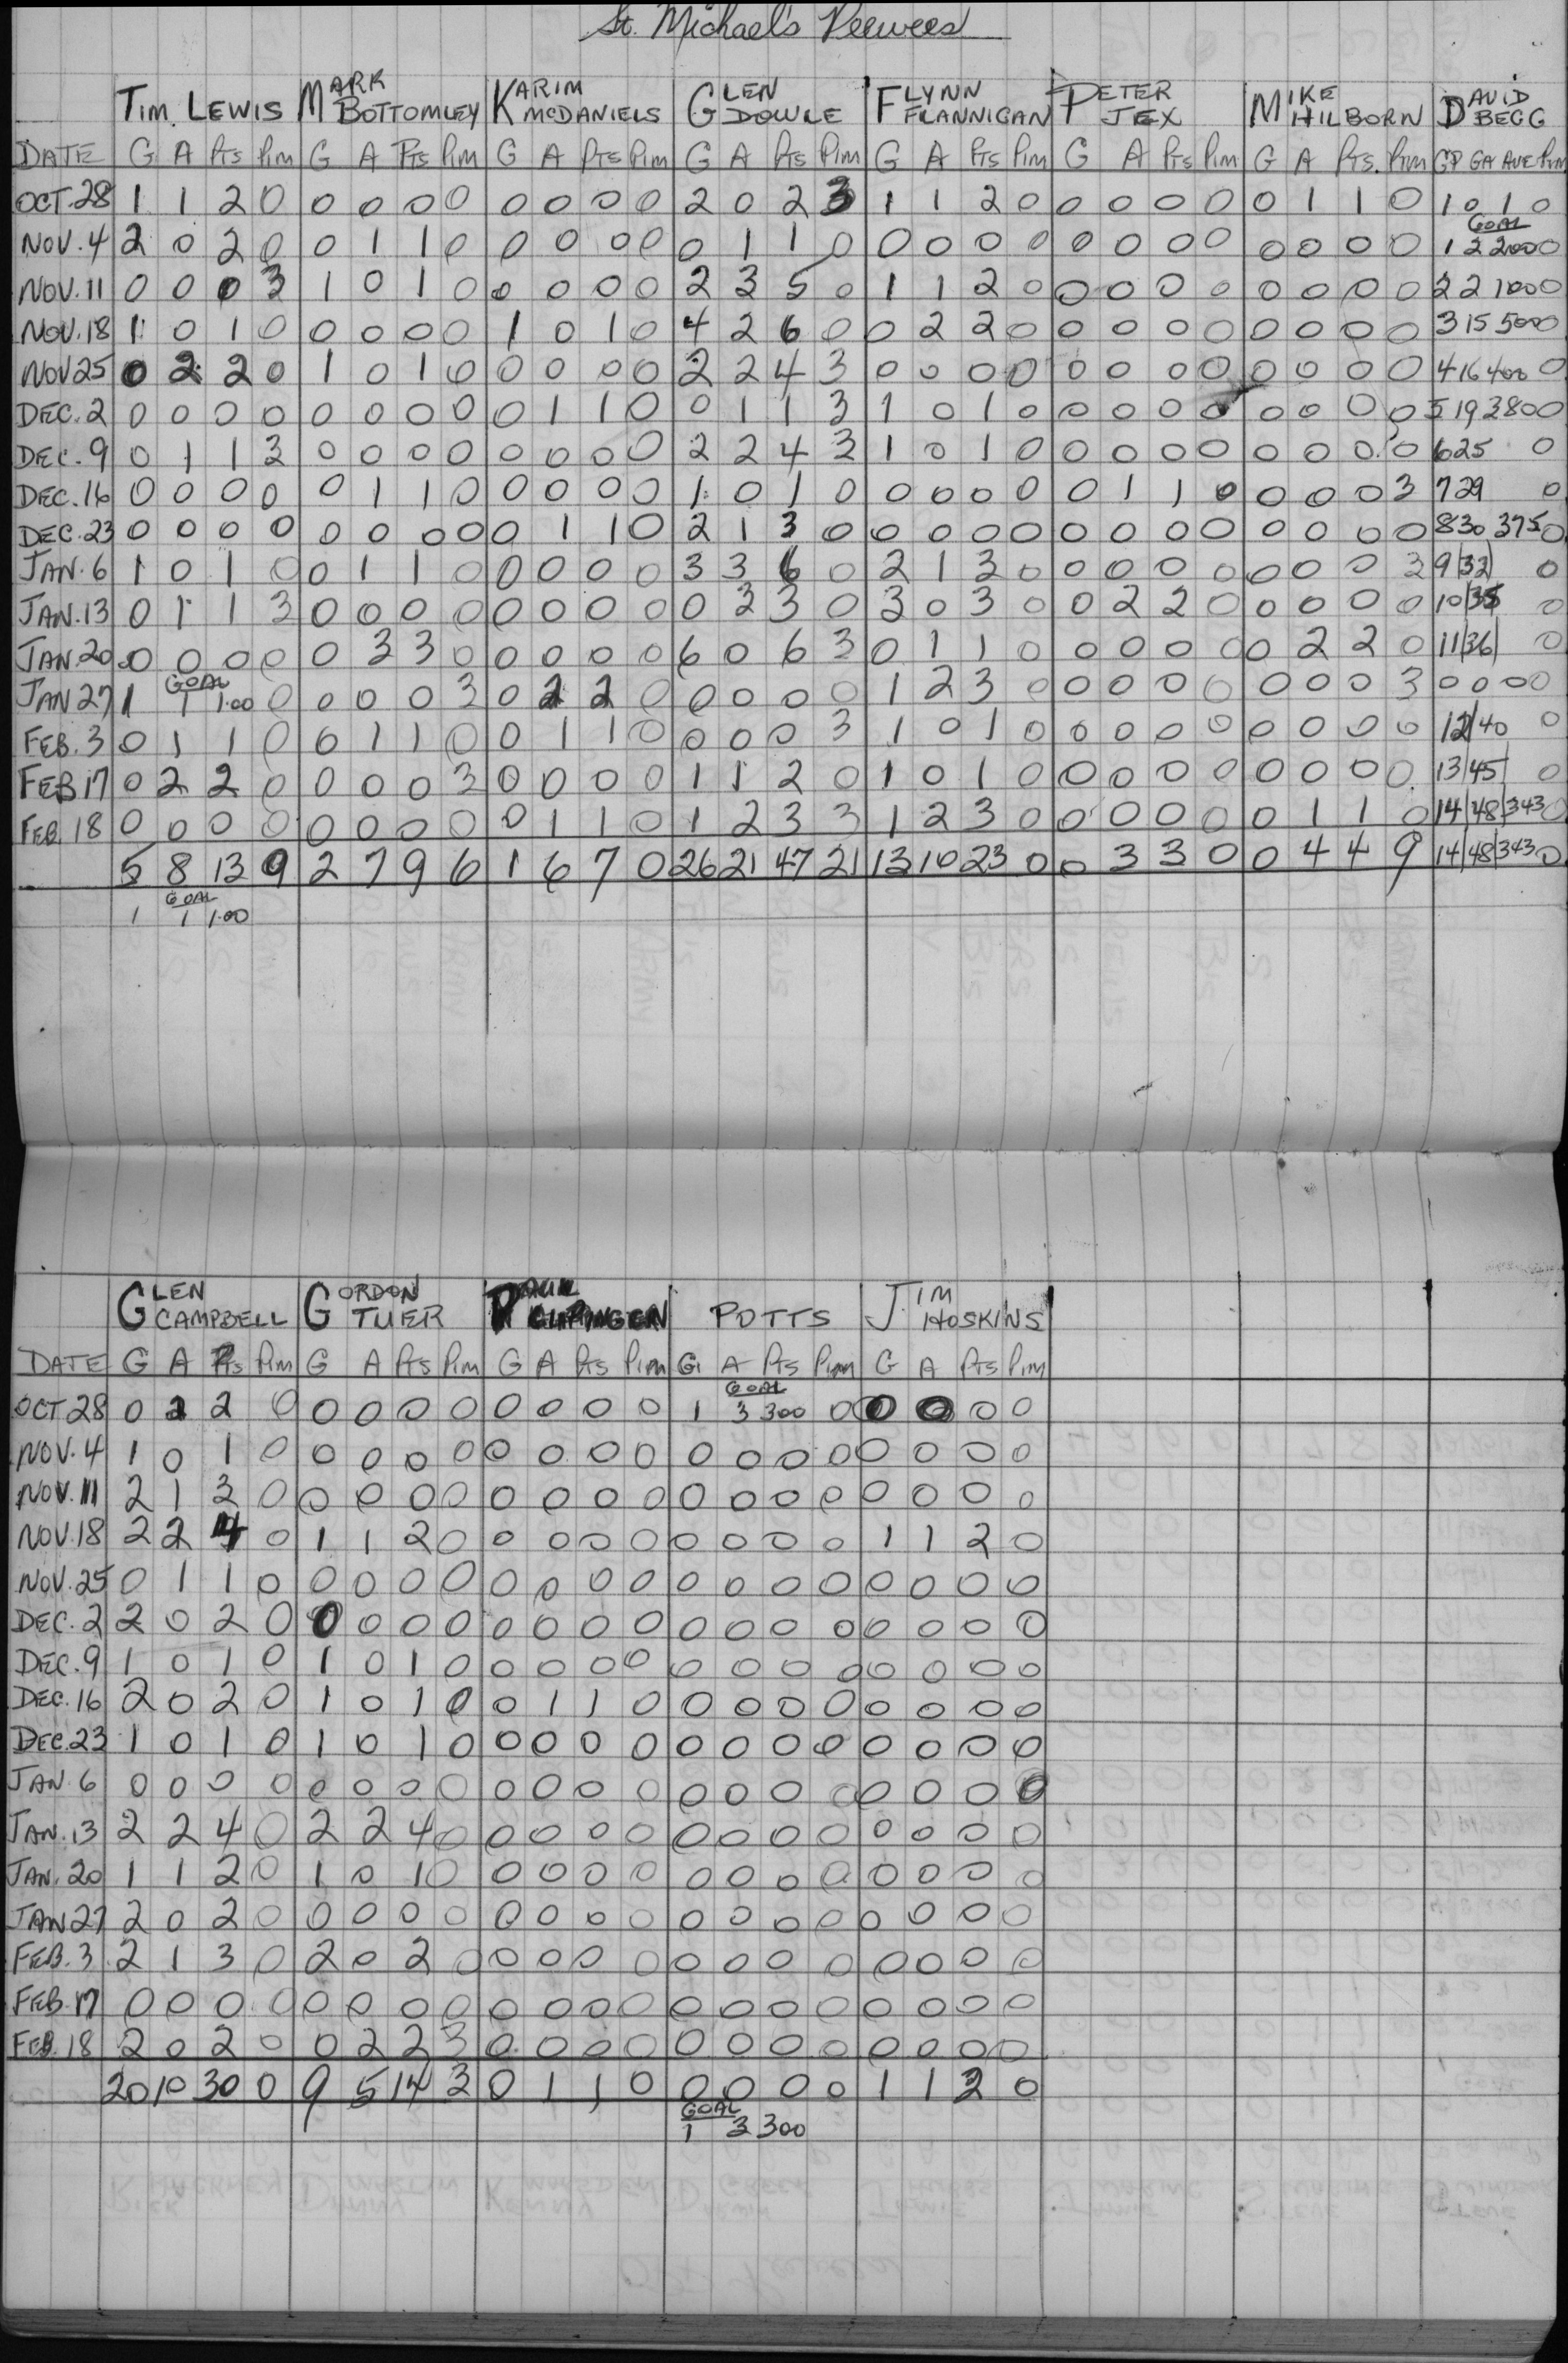 St. Michael's Peewees
TIM LEWIS MARK BOTTOMLEY KARIM McDANIELS GLEN DOWLE FLYNN FLANNIGAN PETER JEX MIKE HILBORN DAVID BEGG
DATE G A Pts Pim G A Pts Pim G A Pts Pim G A Pts Pim G A Pts Pim G A Pts Pim G A Pts. Pim GP GA AVE Pim
OCT. 28 1 1 2 0 0 0 0 0 0 0 0 0 2 0 2 3 1 1 2 0 0 0 0 0 0 1 1 0 1 0 1 0
GOAL
NOV. 4 2 0 2 0 0 1 1 0 0 0 0 0 0 1 1 0 0 0 0 0 0 0 0 0 0 0 0 0 1 2 200 0
NOV. 11 0 0 0 3 1 0 1 0 0 0 0 0 2 3 5 0 1 1 2 0 0 0 0 0 0 0 0 0 2 2 100 0
NOV. 18 1 0 1 0 0 0 0 0 1 0 1 0 4 2 6 0 0 2 2 0 0 0 0 0 0 0 0 0 3 15 500 0
NOV 25 0 2 2 0 1 0 1 0 0 0 0 0 2 2 4 3 0 0 0 0 0 0 0 0 0 0 0 0 4 16 400 0
DEC. 2 0 0 0 0 0 0 0 0 0 1 1 0 0 1 1 3 1 0 1 0 0 0 0 0 0 0 0 0 5 19 380 0
DEC. 9 0 1 1 3 0 0 0 0 0 0 0 0 2 2 4 3 1 0 1 0 0 0 0 0 0 0 0 0 6 25 0
DEC. 16 0 0 0 0 0 1 1 0 0 0 0 0 1 0 1 0 0 0 0 0 0 1 1 0 0 0 0 3 7 29 0
DEC. 23 0 0 0 0 0 0 0 0 0 1 1 0 2 1 3 0 0 0 0 0 0 0 0 0 0 0 0 0 8 30 375 0
JAN. 6 1 0 1 0 0 1 1 0 0 0 0 0 3 3 6 0 2 1 3 0 0 0 0 0 0 0 0 3 9 32 0
JAN. 13 0 1 1 3 0 0 0 0 0 0 0 0 0 3 3 0 3 0 3 0 0 2 2 0 0 0 0 0 10 35 0
JAN. 20 0 0 0 0 0 3 3 0 0 0 0 0 6 0 6 3 0 1 1 0 0 0 0 0 0 2 2 0 11 36 0
GOAL
JAN 27 1 1 1.00 0 0 0 0 3 0 2 2 0 0 0 0 0 1 2 3 0 0 0 0 0 0 0 0 3 0 0 0 0
FEB. 3 0 1 1 0 0 1 1 0 0 1 1 0 0 0 0 3 1 0 1 0 0 0 0 0 0 0 0 0 12 40 0
FEB 17 0 2 2 0 0 0 0 3 0 0 0 0 1 1 2 0 1 0 1 0 0 0 0 0 0 0 0 0 13 45 0
FEB. 18 0 0 0 0 0 0 0 0 0 1 1 0 1 2 3 3 1 2 3 0 0 0 0 0 0 1 1 0 14 48 343 0
5 8 13 9 2 7 9 6 1 6 7 0 26 21 47 21 13 10 23 0 0 3 3 0 0 4 4 9 14 48 343 0
GOAL
1 1 1.00
GLEN CAMPBELL GORDON TUER PAUL POTTS JIM HOSKINS
DATE G A Pts Pim G A Pts Pim G A Pts Pim G A Pts Pim G A Pts Pim
GOAL
OCT 28 0 2 2 0 0 0 0 0 0 0 0 0 1 3 300 0 0 0 0 0
NOV. 4 1 0 1 0 0 0 0 0 0 0 0 0 0 0 0 0 0 0 0 0
NOV. 11 2 1 3 0 0 0 0 0 0 0 0 0 0 0 0 0 0 0 0 0
NOV. 18 2 2 4 0 1 1 2 0 0 0 0 0 0 0 0 0 1 1 2 0
NOV. 25 0 1 1 0 0 0 0 0 0 0 0 0 0 0 0 0 0 0 0 0
DEC. 2 2 0 2 0 0 0 0 0 0 0 0 0 0 0 0 0 0 0 0 0
DEC. 9 1 0 1 0 1 0 1 0 0 0 0 0 0 0 0 0 0 0 0 0
DEC. 16 2 0 2 0 1 0 1 0 0 1 1 0 0 0 0 0 0 0 0 0
DEC. 23 1 0 1 0 1 0 1 0 0 0 0 0 0 0 0 0 0 0 0 0
JAN. 6 0 0 0 0 0 0 0 0 0 0 0 0 0 0 0 0 0 0 0 0
JAN. 13 2 2 4 0 2 2 4 0 0 0 0 0 0 0 0 0 0 0 0 0
JAN. 20 1 1 2 0 1 0 1 0 0 0 0 0 0 0 0 0 0 0 0 0
JAN 27 2 0 2 0 0 0 0 0 0 0 0 0 0 0 0 0 0 0 0 0
FEB. 3 2 1 3 0 2 0 2 0 0 0 0 0 0 0 0 0 0 0 0 0
FEB. 17 0 0 0 0 0 0 0 0 0 0 0 0 0 0 0 0 0 0 0 0
FEB. 18 2 0 2 0 0 2 2 3 0 0 0 0 0 0 0 0 0 0 0 0
20 10 30 0 9 5 14 3 0 1 1 0 0 0 0 0 1 1 2 0
GOAL
1 3 300